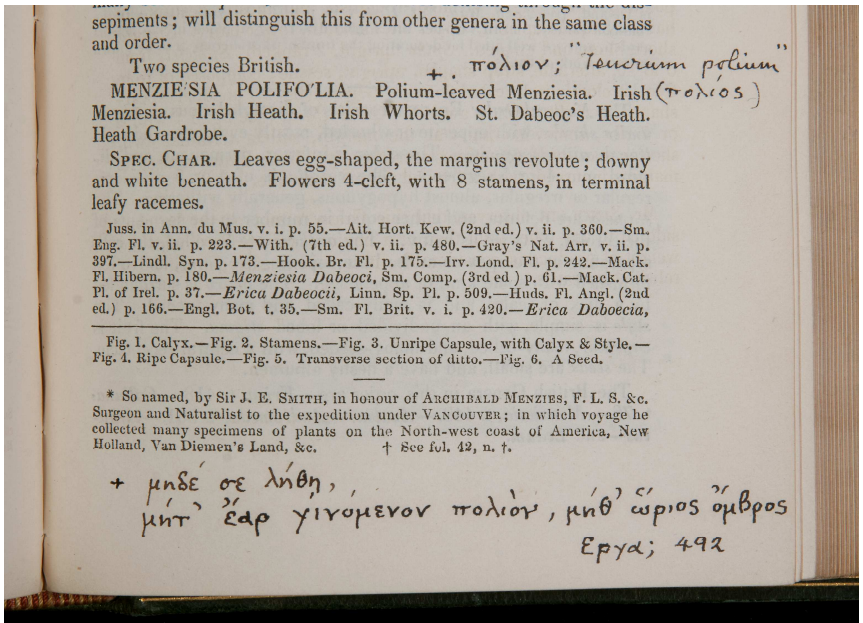 sepiments; will distinguish this from other genera in the same class
and order.
Two species British.
+ . πόλιον; "Teucrium polium"
MENZIE'SIA POLIFO'LIA. Polium-leaved Menziesia. Irish (πολιός)
Menziesia. Irish Heath. Irish Whorts. St. Dabeoc's Heath.
Heath Gardrobe.
SPEC. CHAR. Leaves egg-shaped, the margins revolute; downy
and white beneath. Flowers 4-cleft, with 8 stamens, in terminal
leafy racemes.
Juss. in Ann. du Mus. v. i. p. 55.—Ait. Hort. Kew. (2nd ed.) v. ii. p. 360.—Sm.
Eng. Fl. v. ii. p. 223.—With. (7th ed.) v. ii. p. 480.—Gray's Nat. Arr. v. ii. p.
397.—Lindl. Syn. p. 173.—Hook. Br. Fl. p. 175.—Irv. Lond. Fl. p. 242.—Mack.
Fl. Hibern. p. 180.—Menziesia Dabeoci, Sm. Comp. (3rd ed ) p. 61.—Mack. Cat.
Pl. of Irel. p. 37.—Erica Dabeocii, Linn. Sp. Pl. p. 509.—Huds. Fl. Angl. (2nd
ed.) p. 166.—Engl. Bot. t. 35.—Sm. Fl. Brit. v. i. p. 420.—Erica Daboecia,
Fig. 1. Calyx.—Fig. 2. Stamens.—Fig. 3. Unripe Capsule, with Calyx & Style.—
Fig. 4. Ripe Capsule.—Fig. 5. Transverse section of ditto.—Fig. 6. A Seed.
* So named, by Sir J. E. SMITH, in honour of ARCHIBALD MENZIES, F. L. S. &c.
Surgeon and Naturalist to the expedition under VANCOUVER; in which voyage he
collected many specimens of plants on the North-west coast of America, New
Holland, Van Diemen's Land, &c. † See fol. 42, n. †.
+ μηδέ σε λήθη,
μήτ' ἔαρ γινόμενον πολιὸν, μήθ' ὥριος ὄμβρος
Εργα; 492